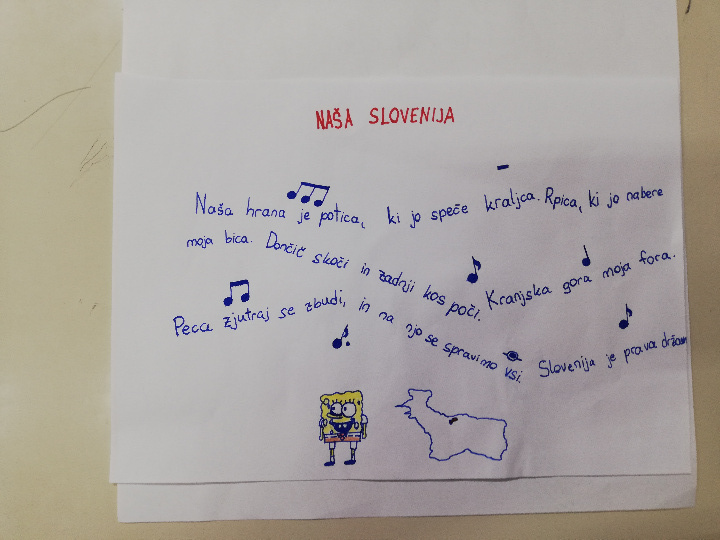 NAŠA SLOVENIJA
Naša hrana je potica, ki jo speče kraljca. Rpica, ki jo nabere
moja bica. Dončič skoči in zadnji kos poči. Kranjska gora moja fora.
Peca zjutraj se zbudi, in na njo se spravimo vsi. Slovenija je prava držav